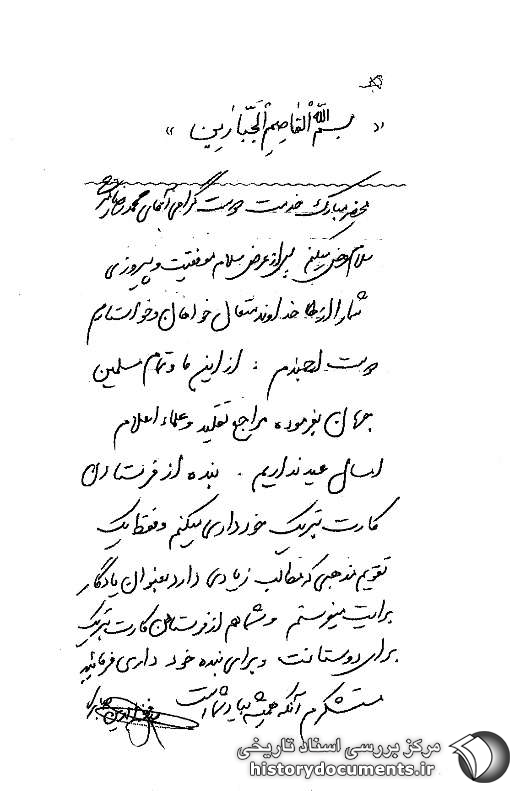 « بسم الله القاصم الجبارین »
بمحضر مبارک خدمت دوست گرامی آقای محمد
سلام عرض میکنم پس از عرض سلام موفقیت و پیروزی
شما را از خداوند متعال خواهان و خواستارم
دوست ارجمندم : از این ما و تمام مسلمین
جهان بفرموده مراجع تقلید و علماء اعلام
امسال عید نداریم . بنده از فرستادن
کارت تبریک خودداری میکنم و فقط یک
تقویم مذهبی که مطالب زیادی دارد بعنوان یادگار
برایت میفرستم و شما هم از فرستادن کارت تبریک
برای دوستانت و برای بنده خود داری فرمائید
متشکرم آنکه همیشه بیاد شما است
مرکز بررسی اسناد تاریخی
historydocuments.ir